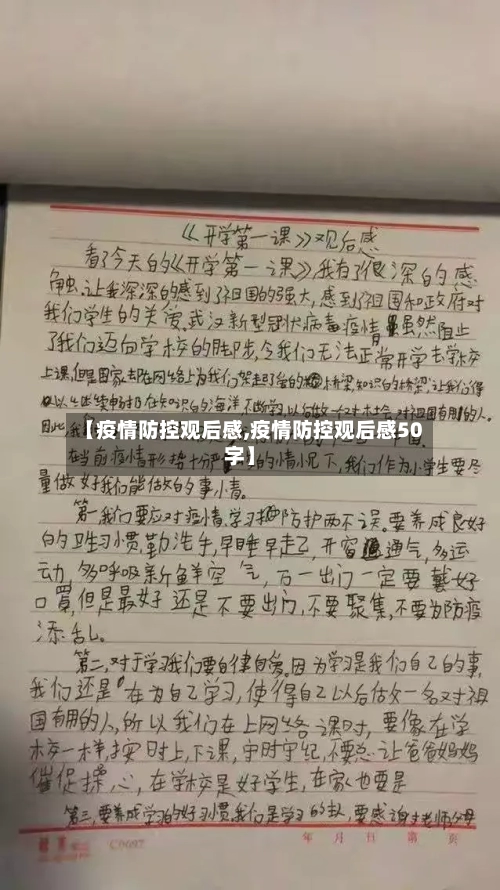 《开学第一课》观后感
看了今天的《开学第一课》我有了很深的感
触.让我深深的感到了祖国的强大,感到了祖国和政府对
我们学生的关爱,武汉新型冠状病毒疫情虽然阻止
了我们迈向学校的脚步,令我们无法正常开学去学校
上课,但是国家却在网络上为我们架起了知识的桥梁让我们得
以继续畅游在知识的海洋不断学习,以后做一名对祖国有用的人。
因此,我
【疫情防控观后感,疫情防控观后感50
字】
在当前疫情形势十分严的情况下,我们作为小学生要尽
量做好我们能做好的事情。
第一我们要应对疫情.学习防护两不误.要养成良好
的卫生习惯,勤洗手,早睡早起,开窗通气,多运
动,多呼吸新鲜空气,万一出门一定要戴好
口罩,但是最好还是不要出门,不要聚集,不要为防疫
添乱。
第二,对于学习我们要自律自爱。因为学习是我们自己的事,
我们还是在为自己学习,使得自己以后做一名对祖
国有用的人,所以我们在上网络课时,要像在学
校一样,按时上,下课,守时守纪,不要总让爸爸妈妈
催促操心,在学校是好学生,在家也要是
第三,要养成学习的好习惯,我们是学习的主人,要感谢老师父母
年 月 日 第 页